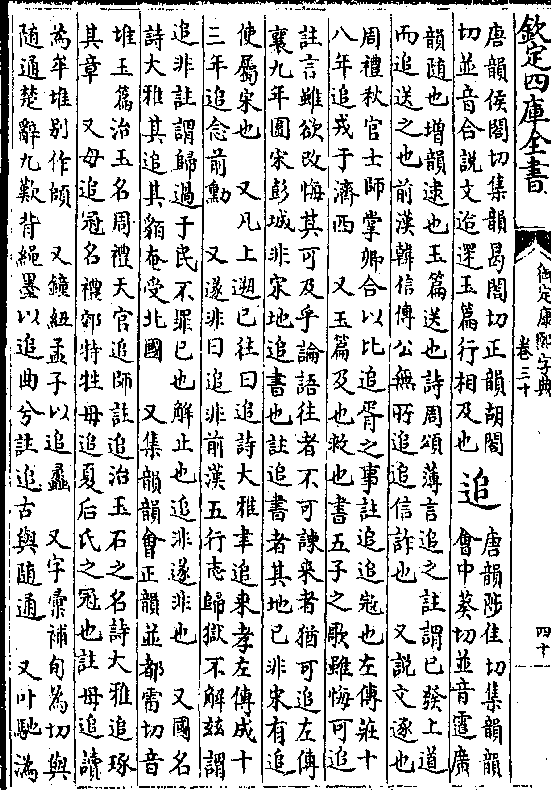 欽定四庫全書
御定康熙字典
卷三十
四十一
唐韻侯閤切集韻曷閤切正韻胡閤
切並音合說文迨遝玉篇行相及也
追
唐韻陟佳切集韻韻
會中葵切並音䨓廣
韻随也增韻逮也玉篇送也詩周頌薄言追之註謂已發上道
而追送之也前漢韓信傳公無所追追信詐也 又說文逐也
周禮秋官士師掌鄉合以比追胥之事註追追寇也左傳莊十
八年追戎于濟西 又玉篇及也救也書五子之歌雖悔可追
註言雖欲改悔其可及乎論語往者不可諫來者猶可追左傳
襄九年圍宋彭城非宋地追書也註追書者其地已非宋有追
使屬宋也 又凡上遡已往曰追詩大雅聿追來孝左傳成十
三年追念前勳 又遂非曰追非前漢五行志歸獄不解兹謂
追非註謂歸過于民不罪已也解止也追非遂非也 又國名
詩大雅其追其貊奄受北國 又集韻韻會正韻並都雷切音
堆玉篇治玉名周禮天官追師註追治玉石之名詩大雅追琢
其章 又毋追冠名禮郊特牲毋追夏后氏之冠也註毋追讀
為牟堆别作頧 又鐘紐孟子以追蠡 又字彙補旬為切與
随通楚辭九歎背繩墨以追曲兮註追古與随通 又叶馳濿